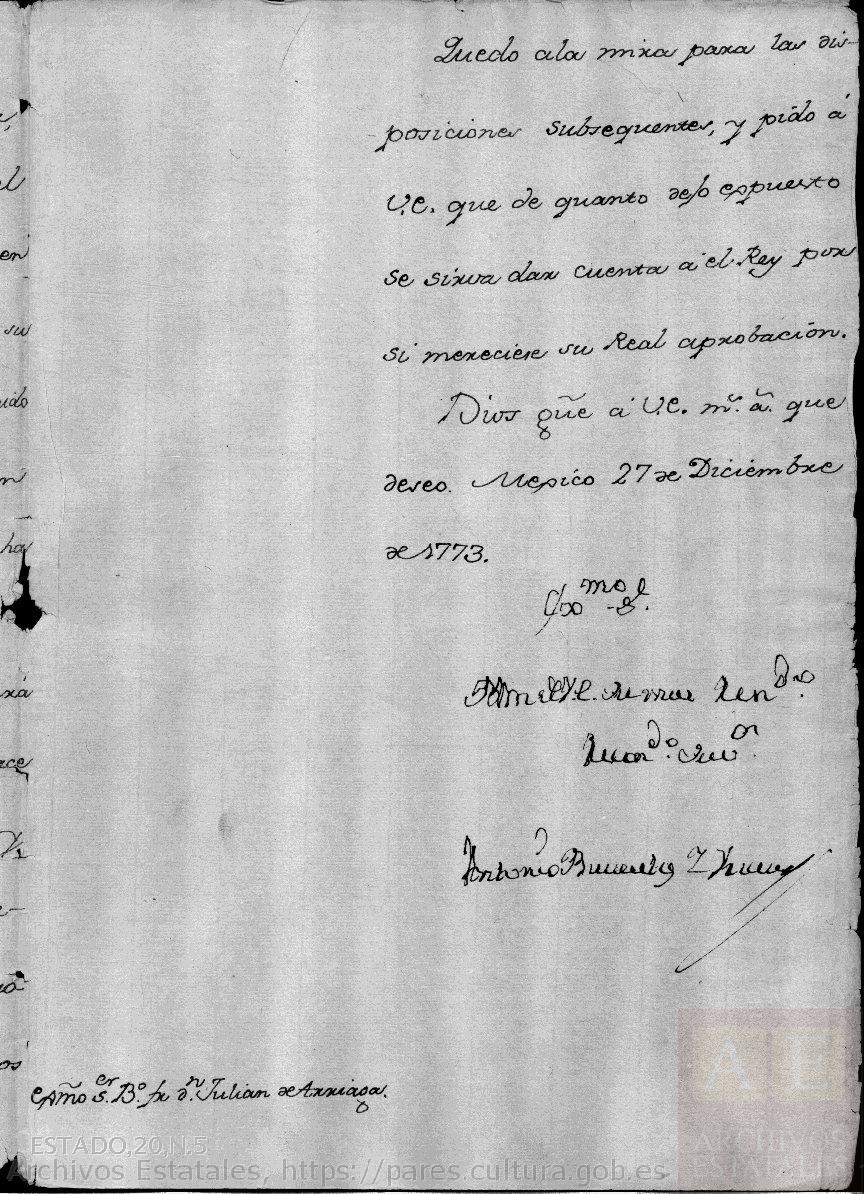 Quedo ala mira para las dis-
posiciones subsequentes, y pido á
V.E. que de quanto dejo expuesto
se sirva dar cuenta á el Rey por
si mereciere su Real aprobación.
Dios gũe á V.E. m.s a.s que
deseo. Mexico 27 de Diciembre
de 1773.
Exmo S.r
B l m de V.E. su mas ren.do
Serv.or
Antonio Bucareli y Ursua
Exmõ s.er B.o fr d.n Julian de Arriaga.
en
su
uido
ha
ESTADO,20,N.5
Archivos Estatales, https://pares.cultura.gob.es
AE
ARCHIVOS
ESTATALES